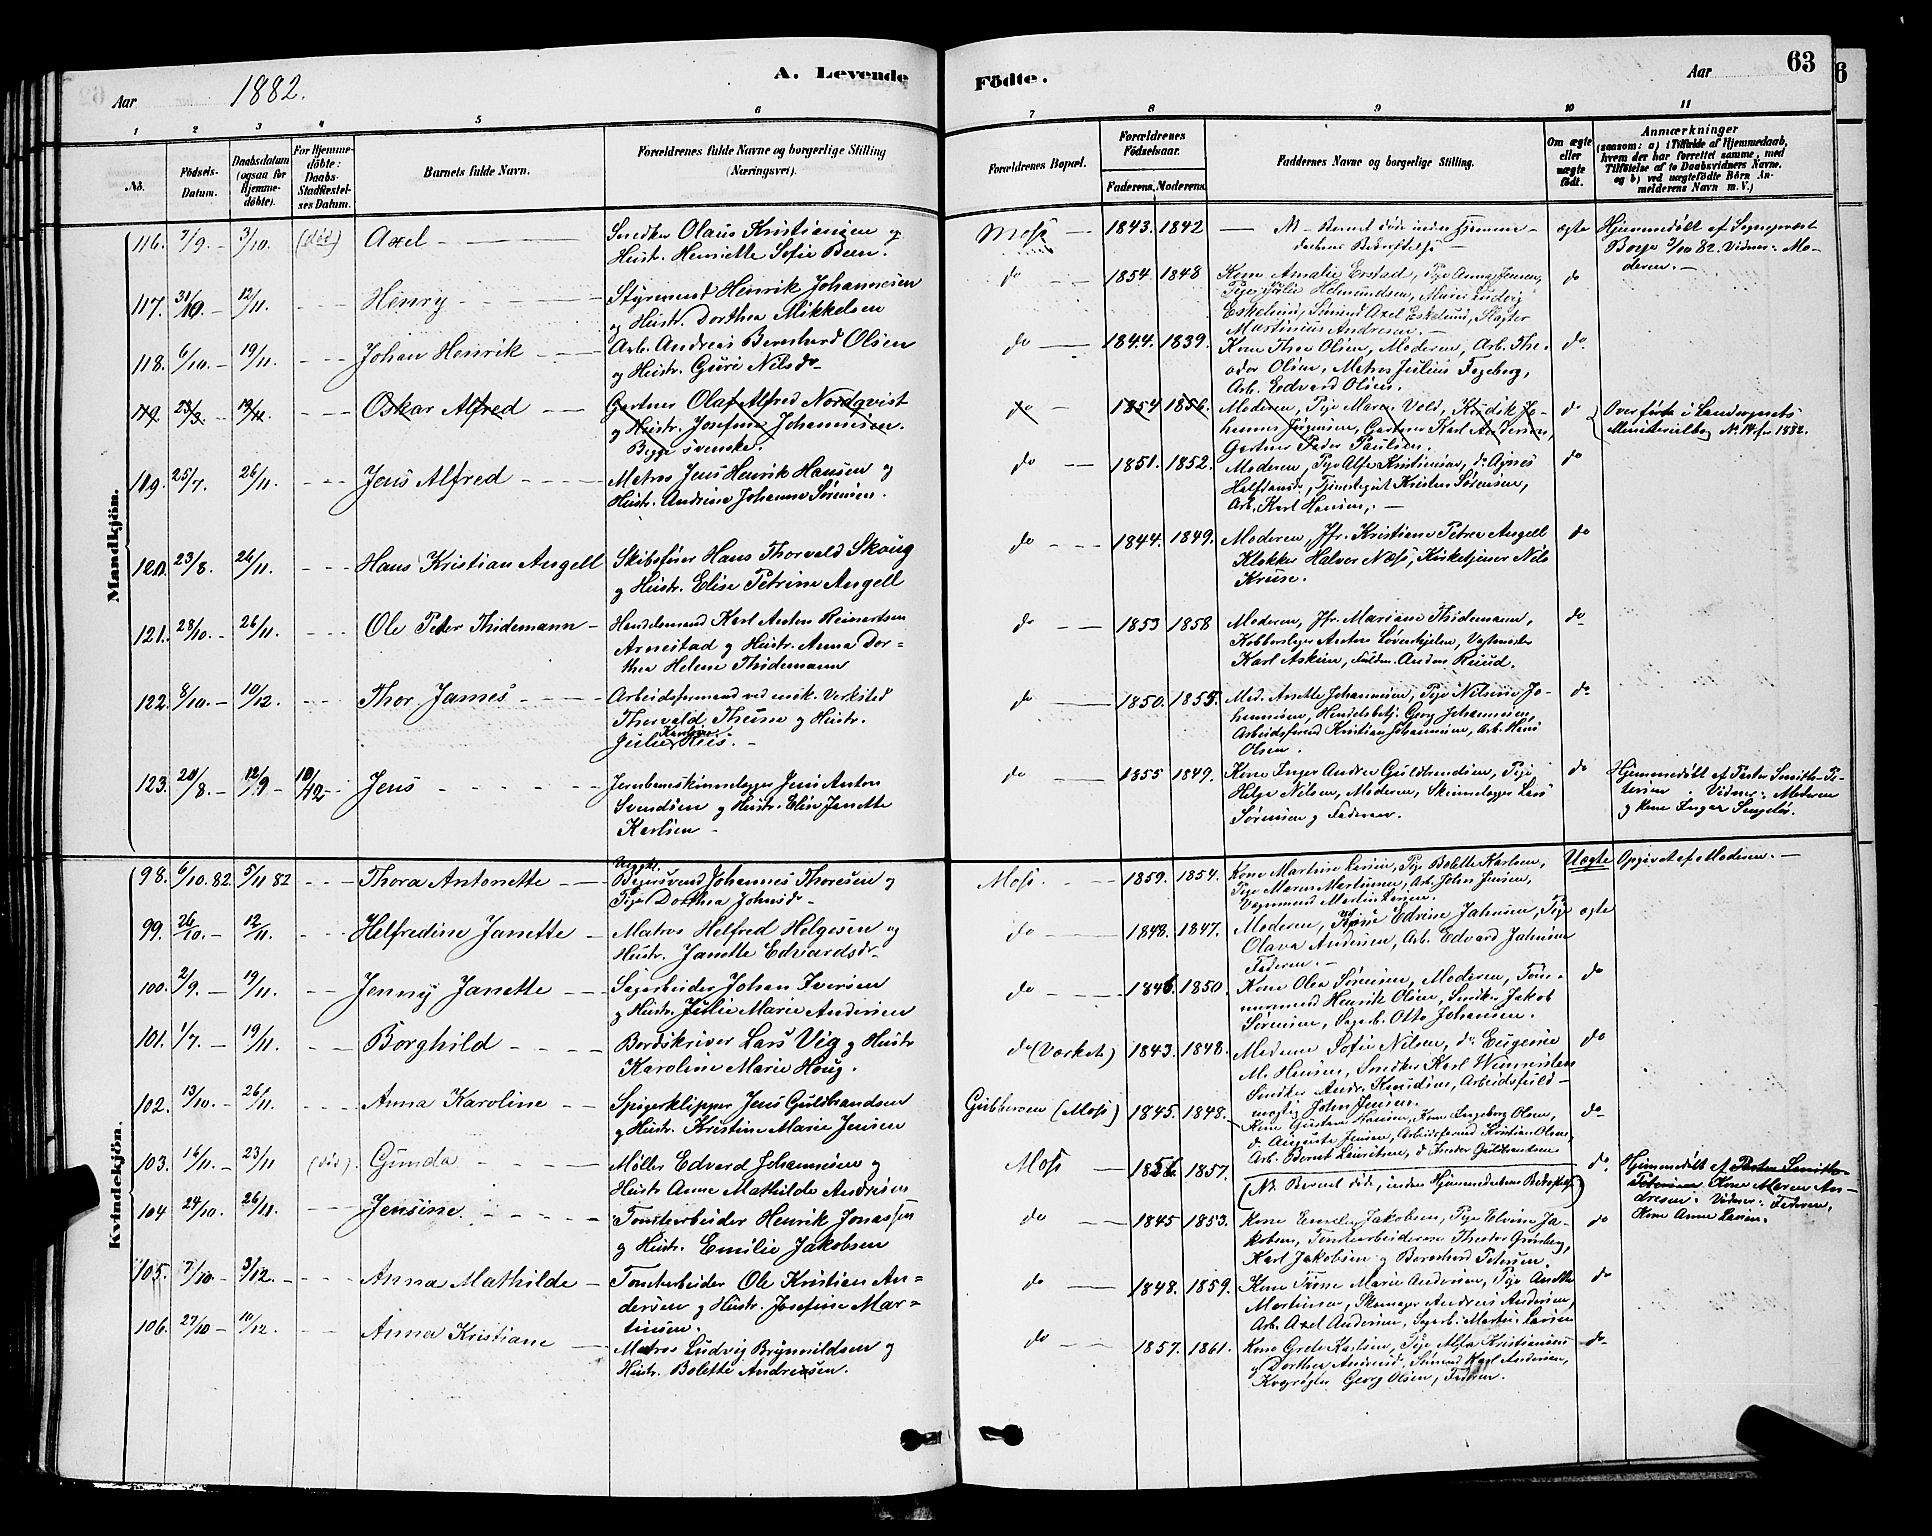 Aar 1882. A. Levende Födte. Aar 63
1 2 3 4 5 6 7 8 9 10 11
No. Födsels-Datum. Daabsdatum (ogsaa for Hjemmedöbte). For Hjemmedöbte: Daabs-Stadfæstelses Datum. Barnets fulde Navn. Forældrenes fulde Navne og borgerlige Stilling (Næringsvei). Forældrenes Bopæl. Forældrenes Födselsaar. Faderens. Moderens. Faddernes Navne og borgerlige Stilling. Om ægte eller uægte födt. Anmærkninger (saasom: a) i Tilfælde af Hjemmedaab, hvem der har forrettet samme, med Tilföielse af to Daabsvidners Navne, og b) ved uægtefödte Börn Anmelderens Navn m. V.)
Mandkjön.
116. 7/9. 3/10. (död) Axel Snedker Olaus Kristiansen og
Hustr. Henriette Sofie Been.
Moss 1843. 1842 Barnet døde inden Hjemme-
daabens Bekræftelse ægte Hjemmedøbt af Sogneprest
Borge 3/10 82. Vidner: Mo-
deren.
117. 31/10. 12/11. Henry Styrmand Henrik Johannesen
og Hustr. Dorthea Mikkelsen
do 1854. 1848 Kone Amalie Erstad, Pige Anna Jensen,
Pige Julie Helmundsen, Murer Ludvig
Eskelund, Sømand Axel Eskelund, Slagter
Martinius Andresen. do
118. 6/10. 19/11. Johan Henrik Arb. Andreas Bernhard Olsen
og Hustr. Guri Nilsdr
do 1844. 1839. Kone Thea Olsen, Moderen, Arb. The-
odor Olsen, Matros Julius Fageberg,
Arb. Edvard Olsen. do
119. 23/3 19/11. Oskar Alfred Gartner Olaf Alfred Nordqvist
og Hustr. Josefine Johannesen.
Begge svenske.
do 1854 1856. Moderen, Pige Maren Vold, Kudsk Jo-
hannes Jørgensen, Gartner Karl Andersen,
Gartner Peder Paulsen. do Overført i Landsognets
Ministerialbog No. 14 for 1882.
119. 25/7. 26/11. Jens Alfred Matros Jens Henrik Hansen og
Hustr. Andrine Johanne Sørensen.
do 1851. 1852. Moderen, Pige Alfa Kristiansen, do Agnes
Halfdansdr, Tjenestegut Kristen Sørensen,
Arb. Karl Hansen. do
120. 23/8. 26/11. Hans Kristian Angell Skibsfører Hans Thorvald Skoug
og Hustr. Elise Petrine Angell
do 1844. 1849. Moderen, Jfr. Kristiane Petrea Angell
Klokker Halvor Næss, Kirketjener Nils
Kruse. do
121. 28/10. 26/11. Ole Peter Thidemann Handelsmand Karl Anton Reinertsen
Arnestad og Hustr. Anna Dor-
thea Helene Thidemann
do 1853 1858 Moderen, Jfr. Mariane Thidemann,
Kobberslager Anton Løvenhjelm, Vagtmester
Karl Askim, Anders Ruud. do
122. 8/10. 10/12. Thor James Arbeidsformand ved mek. Verksted
Thorvald Theine og Hustr.
Julie Karoline Riis.
do 1850. 1855. Mod. Anette Johannesen, Pige Nilsine Jo-
hannesen, Handelsbetj. Georg Johannesen,
Arbeidsformd Kristian Johannesen, Arb. Hans
Olsen. do
123. 20/8. 12/9 10/12 Jens Jernbaneskinnelægger Jens Anton
Svendsen og Hustr. Elise Janette
Karlsen
do 1855 1849. Kone Inger Andrea Guldbrandsen, Pige
Helga Nilsen, Moderen, Skinnelægger Lars
Sørensen og Faderen. do Hjemmedøbt af Pastor Smith-Pe-
tersen. Vidner: Moderen
og Kone Inger
Kvindekjön.
98. 6/10. 82. 5/11 82 Thora Antonette Ungkl.
Bagersvend Johannes Thoresen og
Pige Dorthea Johnsdr
Moss. 1859. 1854. Kone Martine Larsen, Pige Bolette Karlsen,
Pige Maren Martinsen, Arb. John Jensen,
Vognmand Martin Larsen. Uægte Opgivet af Moderen.
99. 26/10. 12/11. Helfredine Janette Matros Helfred Helgesen og
Hustr. Janette Edvardsdr
do 1848. 1847. Moderen, Edvine Jahnsen, Pige
Olava Andersen, Arb. Edvard Jahnsen
Faderen. ægte
100. 2/9. 19/11. Jenny Janette Sagarbeider Johan Iversen
og Hustr. Julie Marie Andersen
do 1846. 1850. Kone Olea Sørensen, Moderen, Tøm-
mermand Henrik Olsen, Snedker Jakob
Sørensen, Sagarb. Otto Johansen. do
101. 1/7. 19/11. Borghild Bordskriver Lars Vig og Hustr
Karoline Marie Houg.
do (Værket) 1843. 1848. Madame Sofie Nilsen, do Eugenie
M. Hansen, Snedker Karl Wennersten
Snedker Andr. Knudsen, Arbeidsfuld-
mægtig John Jensen. do
102. 13/10. 26/11. Anna Karoline Spigerklipper Jens Guldbrandsen
og Hustr. Kristine Marie Jensen
Gubberoen (Moss) 1845. 1848. Kone Gustava Hansen, Kone Ingeborg Olsen,
do Augusta Jensen, Arbeidsformd Kristian Olsen,
Arb. Bernt Lauritsen, do Guldbrandsen do
103. 16/11. 23/11 (död). Gunda Møller Edvard Johannesen og
Hustr Anne Mathilde Andresen
Moss 1856. 1857. (NB. Barnet døde, inden Hjemmedaabens Bekræftelse) do. Hjemmedøbt af Pastor Smith-
Petersen Kone Maren An-
dresen. Vidner: Faderen,
Kone Anne Larsen.
104 24/10. 26/11. Jensine Tomtearbeider Henrik Jonassen
og Hustr. Emilie Jakobsen
do 1845 1853. Kone Emelie Jakobsen, Pige Elvine Ja-
kobsen, Tomtearbeiderne Theodor Grønberg,
Karl Jakobsen og Bernhard Petersen. do
105. 7/10. 3/12. Anna Mathilde Tomtearbeider Ole Kristian An-
dersen og Hustr. Josefine Mar-
tinsen.
do 1848. 1859. Kone Trine Marie Andersen, Pige Anette
Martinsen, Skomager Andreas Andersen,
Arb. Axel Andersen, Sagarb. Martin Larsen do
106. 27/10 10/12. Anna Kristiane Matros Ludvig Brynildsen og
Hustr. Bolette Andreasen.
do 1857. 1861. Kone Grete Karlsen, Pige Alfa Kristiansen
og Dorthea Amundsdr, Sømand Karl Andersen,
Georg Olsen, Faderen. do